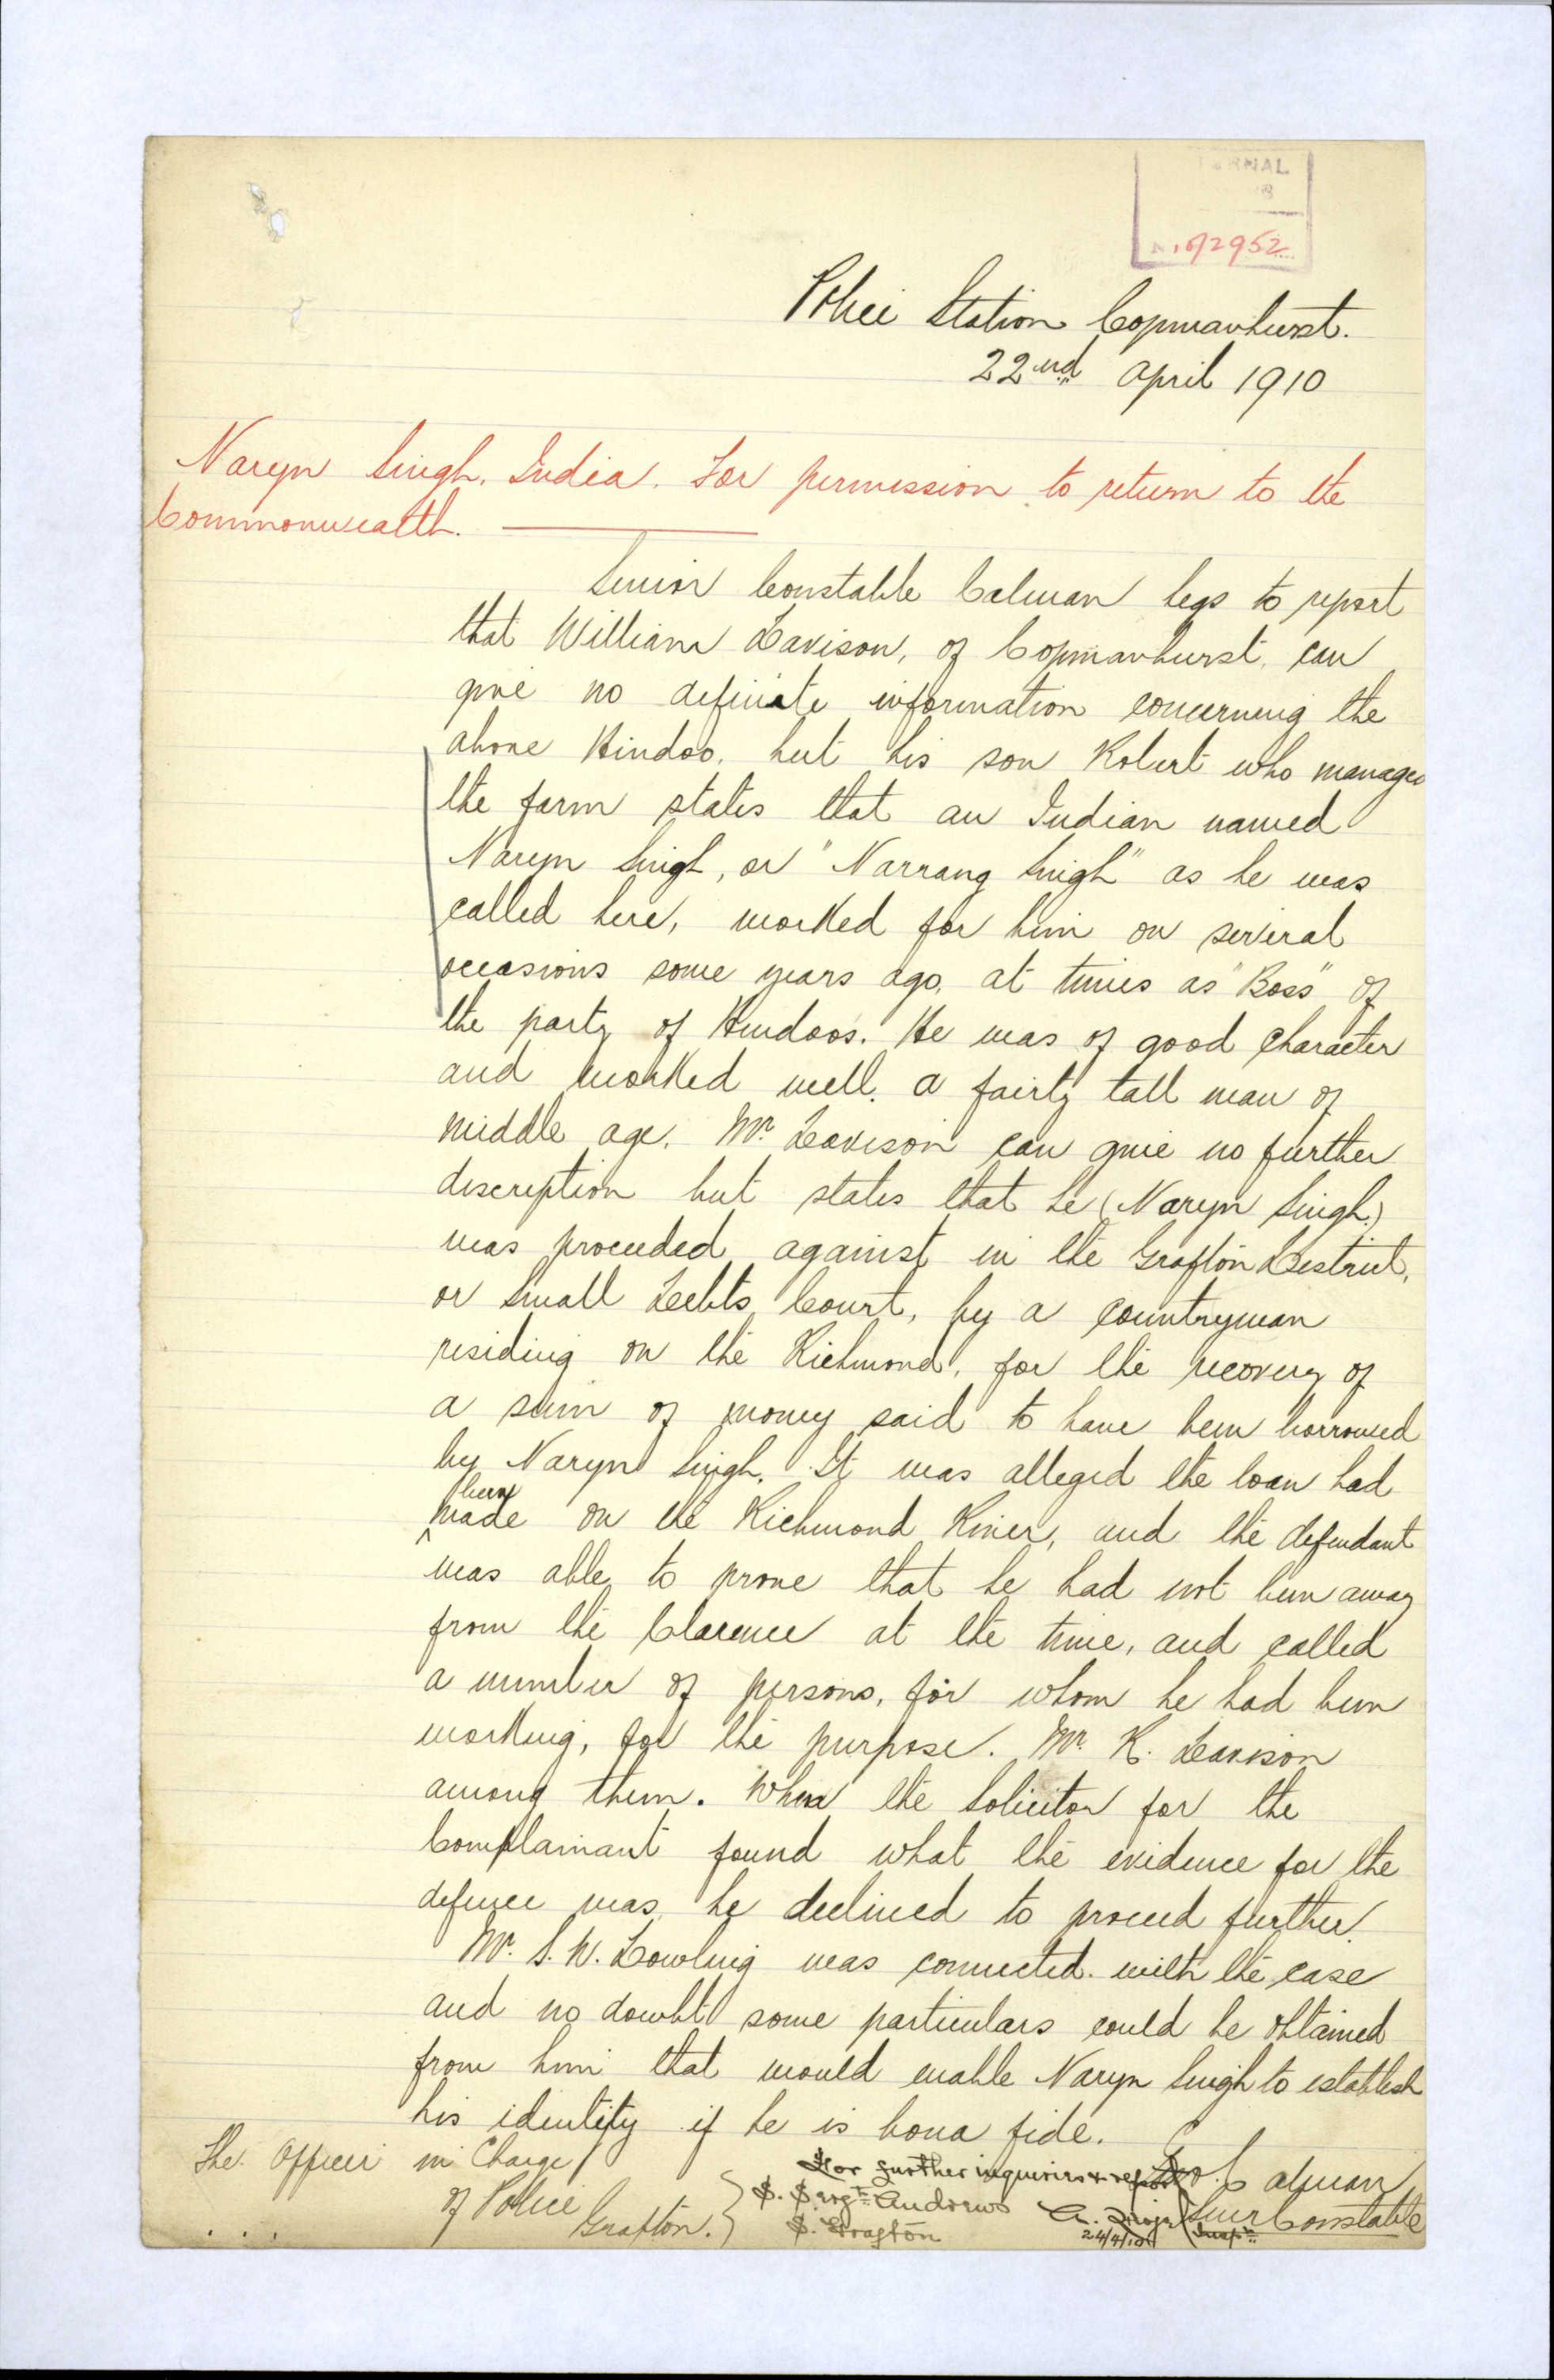 10/2952
Police Station Copmanhurst.
22nd April 1910
Naryn Singh. India. For permission to return to the
Commonwealth.
Senior Constable Calman begs to report
that William Davison, of Copmanhurst, can
give no definate information concerning the
above Hindoo, but his son Robert who manages
the farm states that an Indian named
Naryn Singh, or "Narrang Singh" as he was
called here, worked for him on several
occasions some years ago, at times as "Boss" of
the party of Hindoos. He was of good character
and worked well. a fairly tall man of
middle age. Mr. Davison can give no further
discription but states that he (Naryn Singh)
was proceeded against in the Grafton District,
or Small Debts Court, by a countryman
residing on the Richmond, for the recovery of
a sum of money said to have been borrowed
by Naryn Singh. It was alleged the loan had
been
made on the Richmond River, and the defendant
was able to prove that he had not been away
from the Clarence at the time, and called
a number of persons, for whom he had been
working, for the purpose. Mr. R. Davison
among them. When the Solicitor for the
Complainant found what the evidence for the
defence was, he declined to proceed further.
Mr. S. W. Dowling was connected with the case
and no doubt some particulars could be obtained
from him that would enable Naryn Singh to establish
his identity if he is bona fide.
The Officer in Charge
of Police
Grafton.
For further inquiries & report
S. Sergt. Andrews
S. Grafton
24/4/10
Calman
Senr Constable